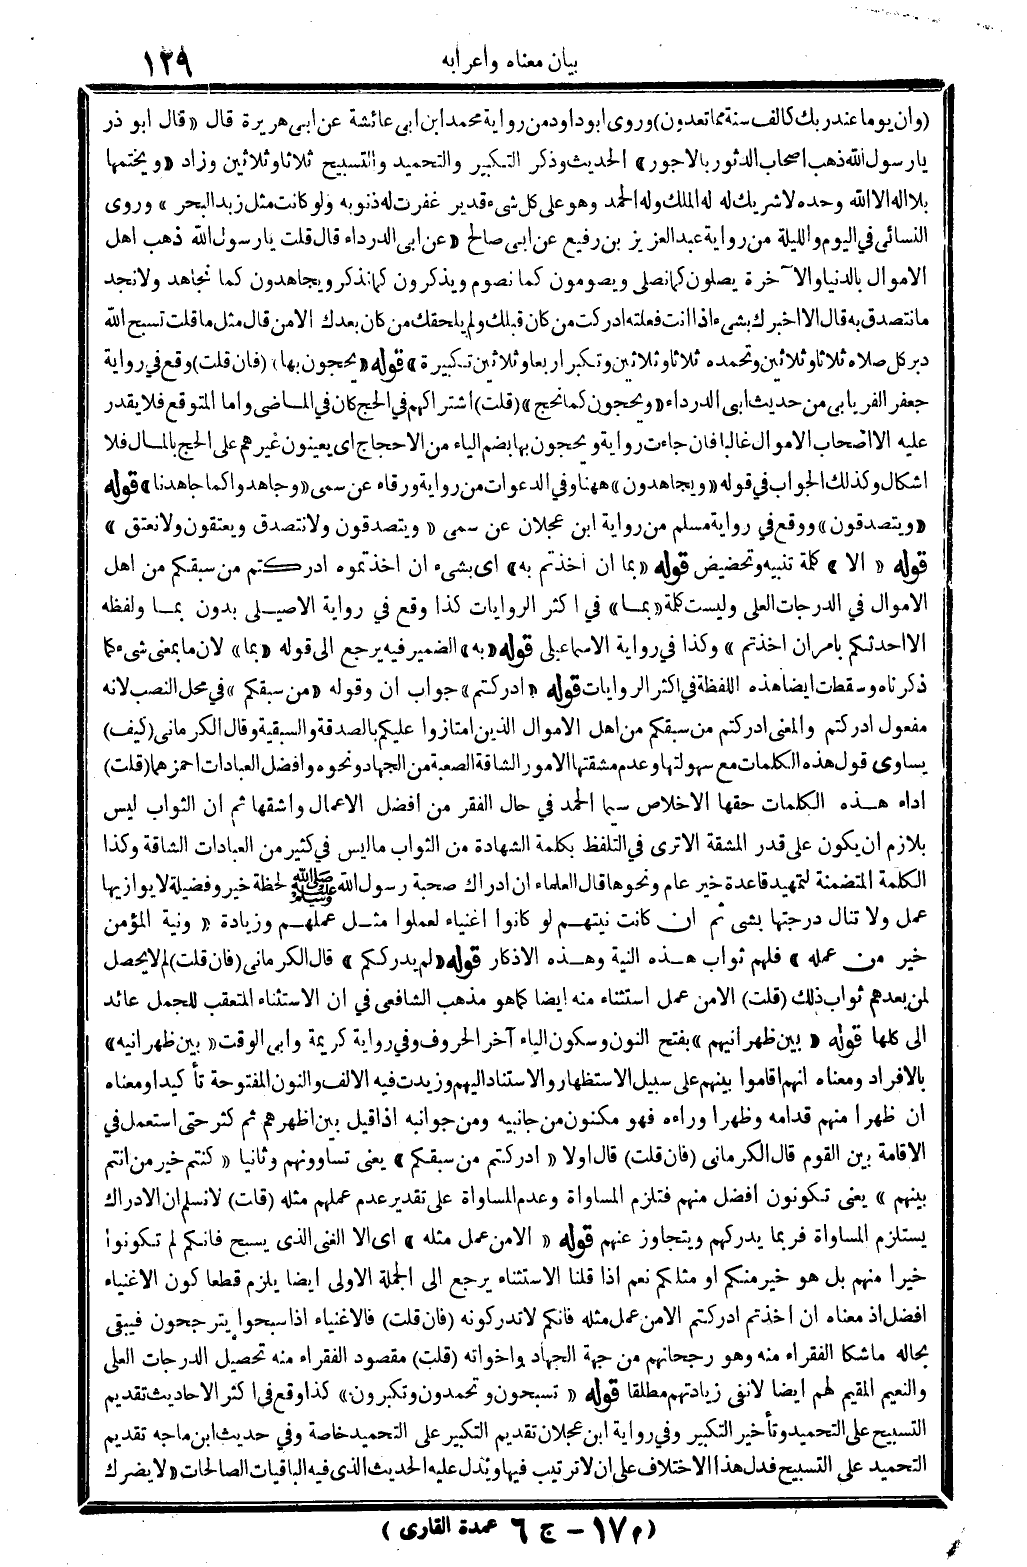 بيان معناه واعرابه ١٢٩
(وان يوما عند ربك كالف سنة مما تعدون) وروى ابو داود من رواية محمد ابن ابى عائشة عن ابى هريرة قال «قال ابو ذر
يا رسول الله ذهب اصحاب الدثور بالاجور» الحديث وذكر التكبير والتحميد والتسبيح ثلاثا وثلاثين وزاد «ويختمها
بلا اله الا الله وحده لا شريك له له الملك وله الحمد وهو على كل شىء قدير غفرت له ذنوبه ولو كانت مثل زبد البحر» وروى
النسائى فى اليوم والليلة من رواية عبد العزيز بن رفيع عن ابى صالح «عن ابى الدرداء قال قلت يا رسول الله ذهب اهل
الاموال بالدنيا والآخرة يصلون كما نصلى ويصومون كما نصوم ويذكرون كما نذكر ويجاهدون كما نجاهد ولا نجد
ما نتصدق به قال الا اخبرك بشىء اذا انت فعلته ادركت من كان قبلك ولم يلحقك من كان بعدك الا من قال مثل ما قلت تسبح الله
دبر كل صلاه ثلاثا وثلاثين وتحمده ثلاثا وثلاثين وتكبر اربعا وثلاثين تكبيرة» قوله «يحجون بها» (فان قلت) وقع فى رواية
جعفر الفريابى من حديث ابى الدرداء «ويحجون كما نحج» (قلت) اشتراكهم فى الحج كان فى الماضى واما المتوقع فلا يقدر
عليه الا اصحاب الاموال غالبا فان جاءت رواية ويحجون بها بضم الياء من الاحجاج اى يعينون غيرهم على الحج بالمال فلا
اشكال وكذلك الجواب فى قوله «ويجاهدون» ههنا وفى الدعوات من رواية ورقاء عن سمى «وجاهدوا كما جاهدنا» قوله
«ويتصدقون» ووقع فى رواية مسلم من رواية ابن عجلان عن سمى «ويتصدقون ولا نتصدق ويعتقون ولا نعتق»
قوله «الا» كلمة تنبيه وتحضيض قوله «بما ان اخذتم به» اى بشىء ان اخذتموه ادركتم من سبقكم من اهل
الاموال فى الدرجات العلى وليست كلمة «بما» فى اكثر الروايات كذا وقع فى رواية الاصيلى بدون بما ولفظه
الا احدثكم بامر ان اخذتم» وكذا فى رواية الاسماعيلى قوله «به» الضمير فيه يرجع الى قوله «بما» لان ما بمعنى شىء كما
ذكرناه وسقطت ايضا هذه اللفظة فى اكثر الروايات قوله «ادركتم» جواب ان وقوله «من سبقكم» فى محل النصب لانه
مفعول ادركتم والمعنى ادركتم من سبقكم من اهل الاموال الذين امتازوا عليكم بالصدقة والسبقية وقال الكرمانى (كيف)
يساوى قول هذه الكلمات مع سهولتها وعدم مشقتها الامور الشاقة الصعبة من الجهاد ونحوه وافضل العبادات احمزها (قلت)
اداء هذه الكلمات حقها الاخلاص سيما الحمد فى حال الفقر من افضل الاعمال واشقها ثم ان الثواب ليس
بلازم ان يكون على قدر المشقة الا ترى فى التلفظ بكلمة الشهادة من الثواب ما ليس فى كثير من العبادات الشاقة وكذا
الكلمة المتضمنة لتمهيد قاعدة خير عام ونحوها قال العلماء ان ادراك صحبة رسول الله ﷺ لحظة خير وفضيلة لا يوازيها
عمل ولا تنال درجتها بشى ثم ان كانت نيتهم لو كانوا اغنياء لعملوا مثل عملهم وزيادة «ونية المؤمن
خير من عمله» فلهم ثواب هذه النية وهذه الاذكار قوله «لم يدرككم» قال الكرمانى (فان قلت) لم لا يحصل
لمن بعدهم ثواب ذلك (قلت) الا من عمل استثناء منه ايضا كما هو مذهب الشافعى فى ان الاستثناء المتعقب للجمل عائد
الى كلها قوله «بين ظهرانيهم» بفتح النون وسكون الياء آخر الحروف وفى رواية كريمة وابى الوقت «بين ظهرانيه»
بالافراد ومعناه انهم اقاموا بينهم على سبيل الاستظهار والاستناد اليهم وزيدت فيه الالف والنون المفتوحة تأكيدا ومعناه
ان ظهرا منهم قدامه وظهرا وراءه فهو مكنون من جانبيه ومن جوانبه اذا قيل بين اظهرهم ثم كثر حتى استعمل فى
الاقامة بين القوم قال الكرمانى (فان قلت) قال اولا «ادركتم من سبقكم» يعنى تساوونهم وثانيا «كنتم خير من انتم
بينهم» يعنى تكونون افضل منهم فتلزم المساواة وعدم المساواة على تقدير عدم عملهم مثله (قلت) لا نسلم ان الادراك
يستلزم المساواة فربما يدركهم ويتجاوز عنهم قوله «الا من عمل مثله» اى الا الغنى الذى يسبح فانكم لم تكونوا
خيرا منهم بل هو خير منكم او مثلكم نعم اذا قلنا الاستثناء يرجع الى الجملة الاولى ايضا يلزم قطعا كون الاغنياء
افضل اذ معناه ان اخذتم ادركتم الا من عمل مثله فانكم لا تدركونه (فان قلت) فالاغنياء اذا سبحوا يترجحون فيبقى
بحاله ما شكا الفقراء منه وهو رجحانهم من جهة الجهاد واخواته (قلت) مقصود الفقراء منه تحصيل الدرجات العلى
والنعيم المقيم لهم ايضا لا نفى زيادتهم مطلقا قوله «تسبحون وتحمدون وتكبرون» كذا وقع فى اكثر الاحاديث تقديم
التسبيح على التحميد وتأخير التكبير وفى رواية ابن عجلان تقديم التكبير على التحميد خاصة وفى حديث ابن ماجه تقديم
التحميد على التسبيح فدل هذا الاختلاف على ان لا ترتيب فيها ويدل عليه الحديث الذى فيه الباقيات الصالحات «لا يضرك
(م ١٧ – ج ٦ عمدة القارى)